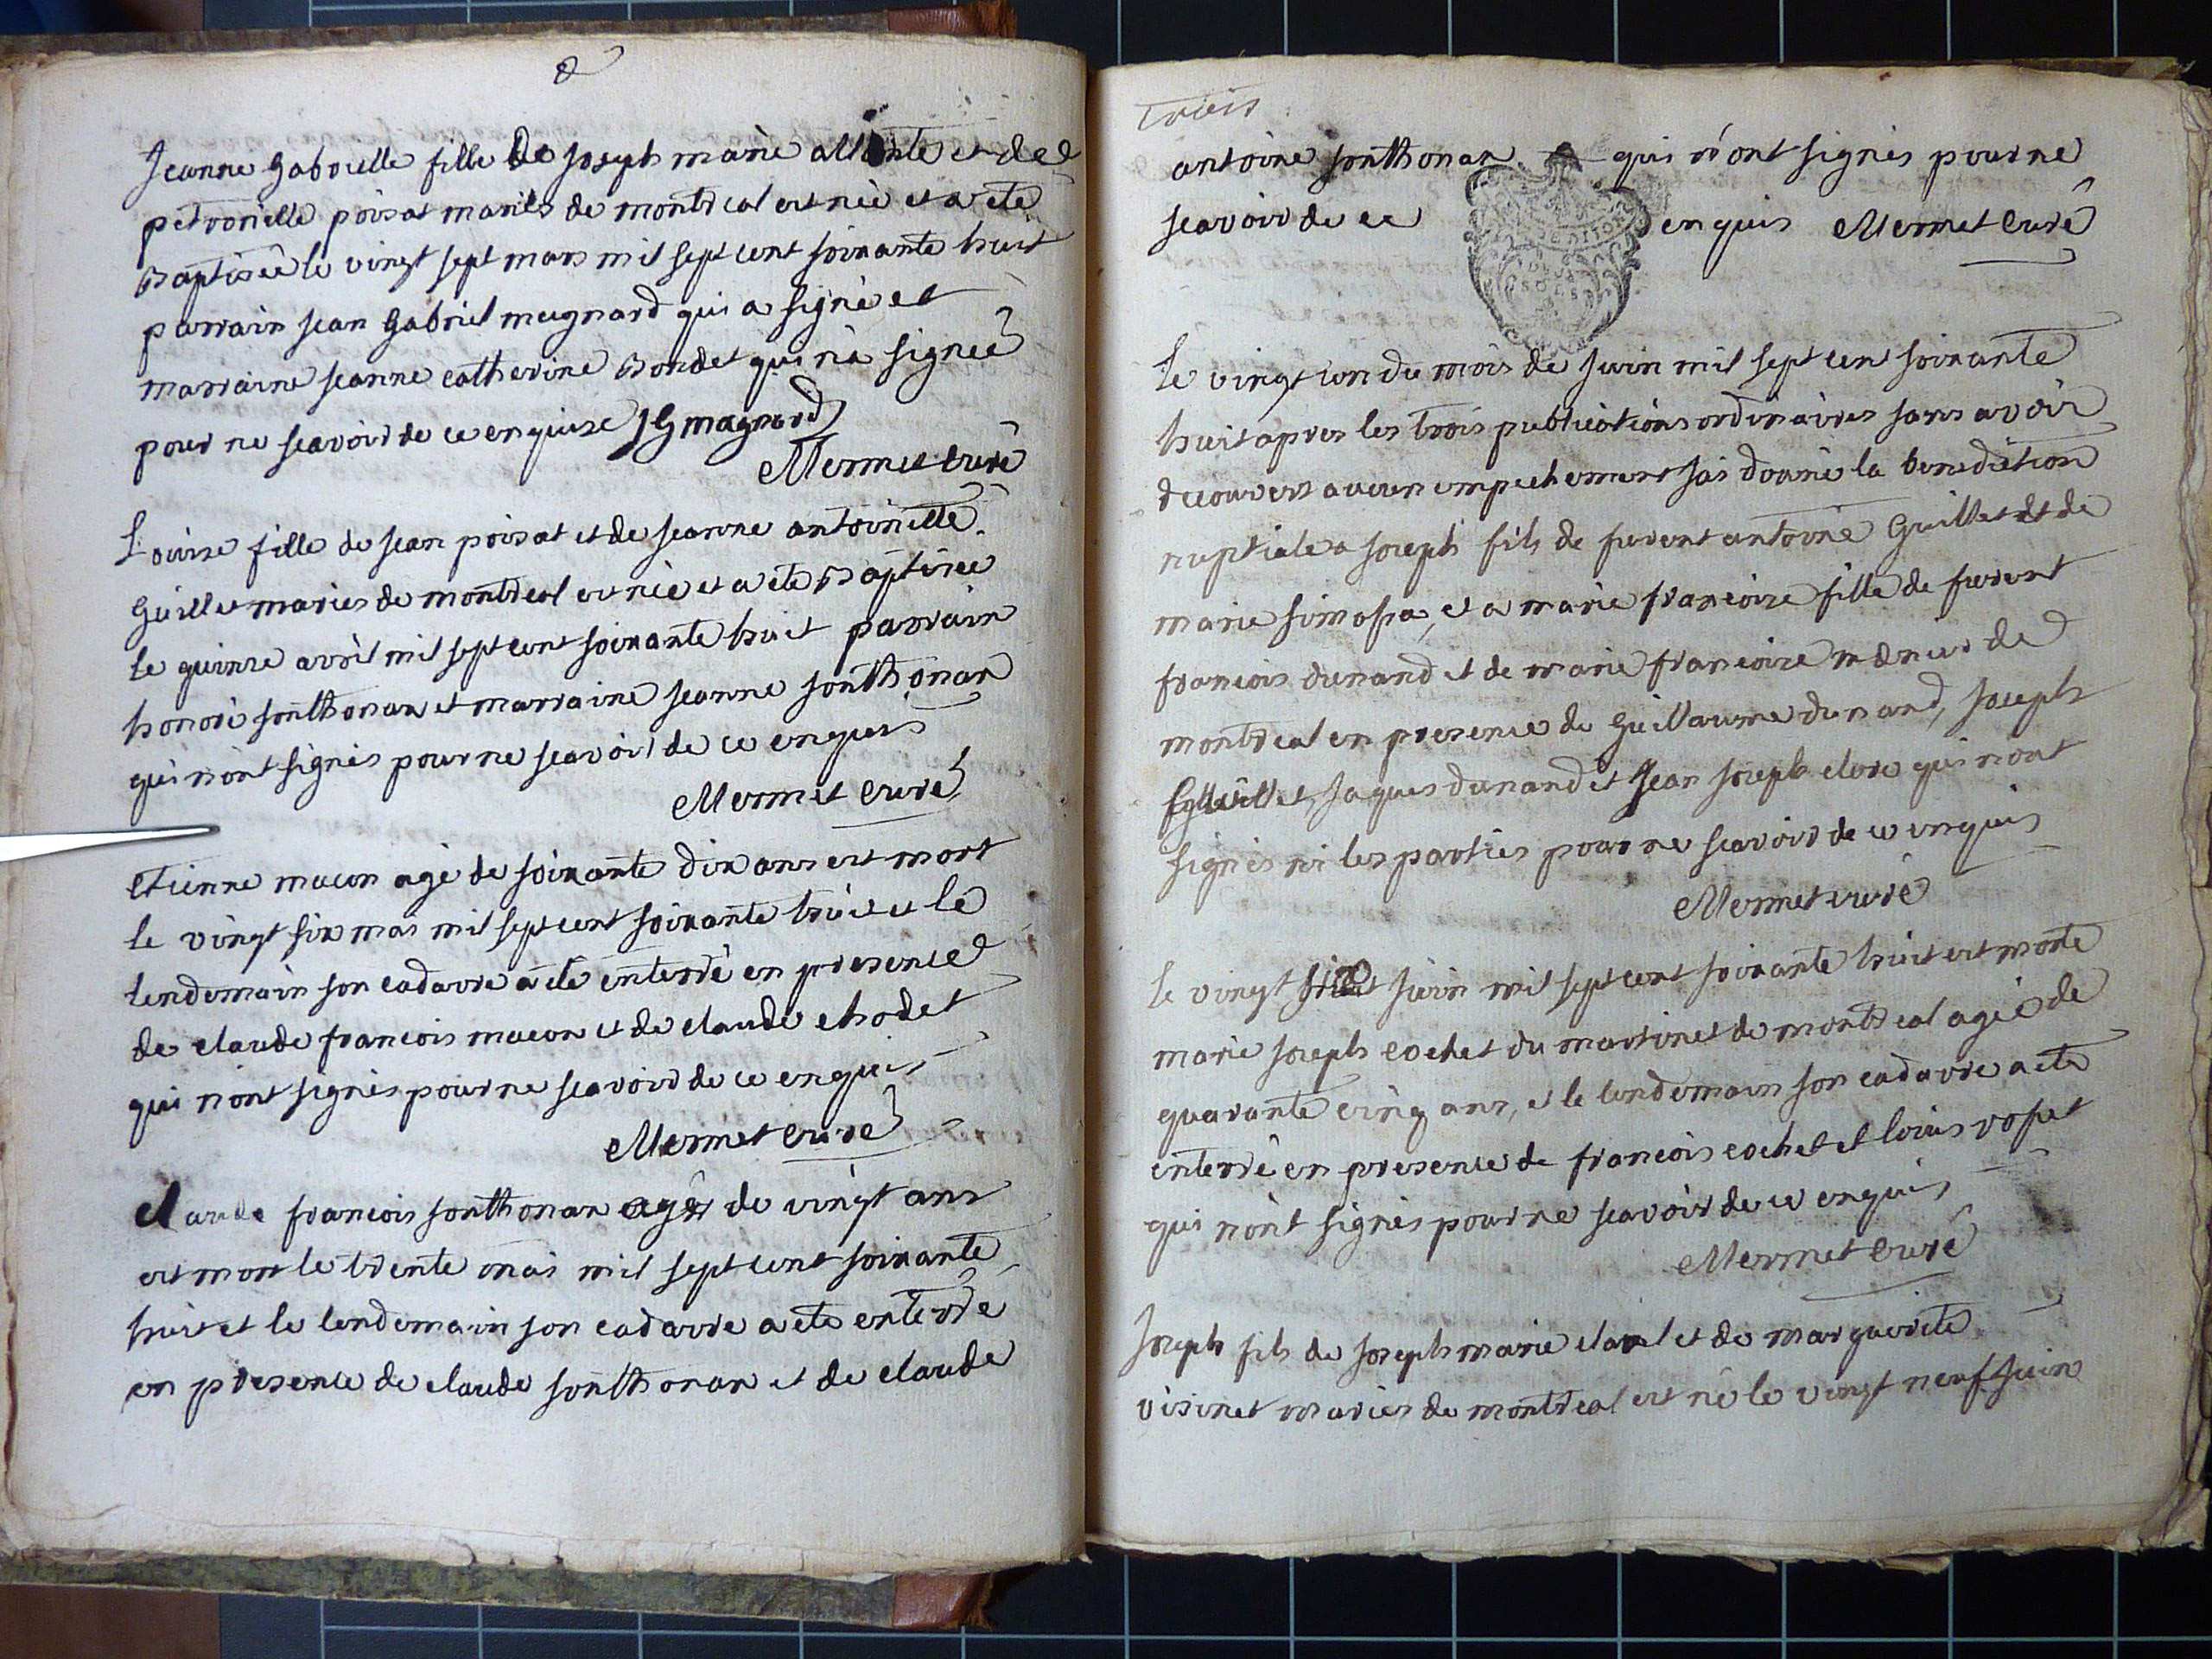 Jeanne Gabrielle fille de Joseph marie allante et de
petronille poisat mariés de montreal est née et a eté
Baptisée le vingt sept mars mil sept cent soixante huit
parrain jean Gabriel meugnard qui a signé et
marraine jeanne catherine Bondet qui n'a signée
pour ne scavoir de ce enquise JG magnard
Mermet curé
Louise fille de jean poisat et de jeanne antoinette
Guillet mariés de montreal est née et a eté Baptisée
le quinze avril mil sept cent soixante huit parrain
honoré sonthonax et marraine jeanne sonthonax
qui n'ont signés pour ne scavoir de ce enquis
Mermet curé
etienne macon agé de soixante dix ans est mort
le vingt six mai mil sept cent soixante huit et le
lendemain son cadavre a eté enterré en presence
de claude francois macon et de claude chodet
qui n'ont signés pour ne scavoir de ce enquis
Mermet curé
claude francois sonthonax agé de vingt ans
est mort le trente mai mil sept cent soixante
huit et le lendemain son cadavre a eté enterré
en presence de claude sonthonax et de claude
trois
antoine sonthonax qui n'ont signés pour ne
scavoir de ce enquis Mermet curé
le vingt un du mois de juin mil sept cent soixante
huit apres les trois publications ordinaires sans avoir
decouvert aucun empechement j'ai donné la benediction
nuptiale a joseph fils de furent antoine Guillet et de
marie et a marie francoise fille de furent
francois dunand et de marie francoise de
montreal en presence de Guillaume dunand, joseph
Guillet, jaques dunand et jean joseph clere qui n'ont
signés ni les parties pour ne scavoir de ce enquis
Mermet curé
le vingt juin mil sept cent soixante huit est morte
marie joseph cochet du martinet de montreal agée de
quarante cinq ans, et le lendemain son cadavre a eté
enterré en presence de francois cochet et louis
qui n'ont signés pour ne scavoir de ce enquis
Mermet curé
joseph fils de joseph marie clavel et de marguerite
visinet mariés de montreal est né le vingt neuf juin